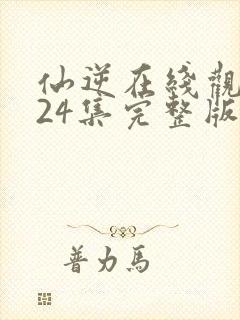 仙逆在綫觀
24集完整版
普力馬